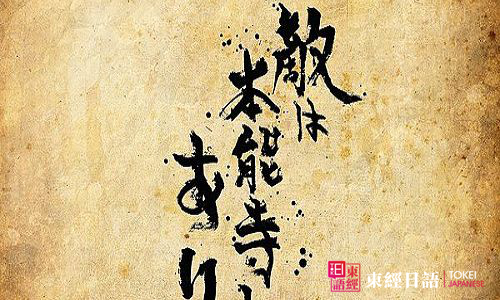 敵は
本能寺
あり
東經
日
東經日語
TOKEI
JAPANESE